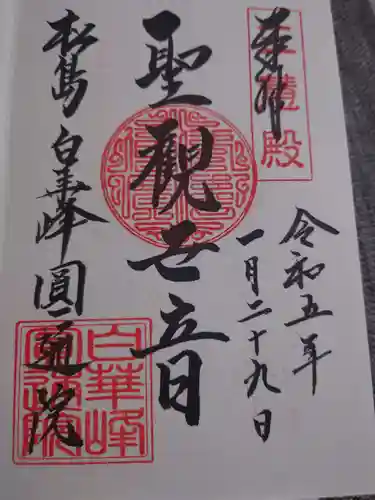 奉拝
三慧殿
令和五年
一月二十九日
聖観世音
松島 白華峰 圓通院
白華峰
圓通院